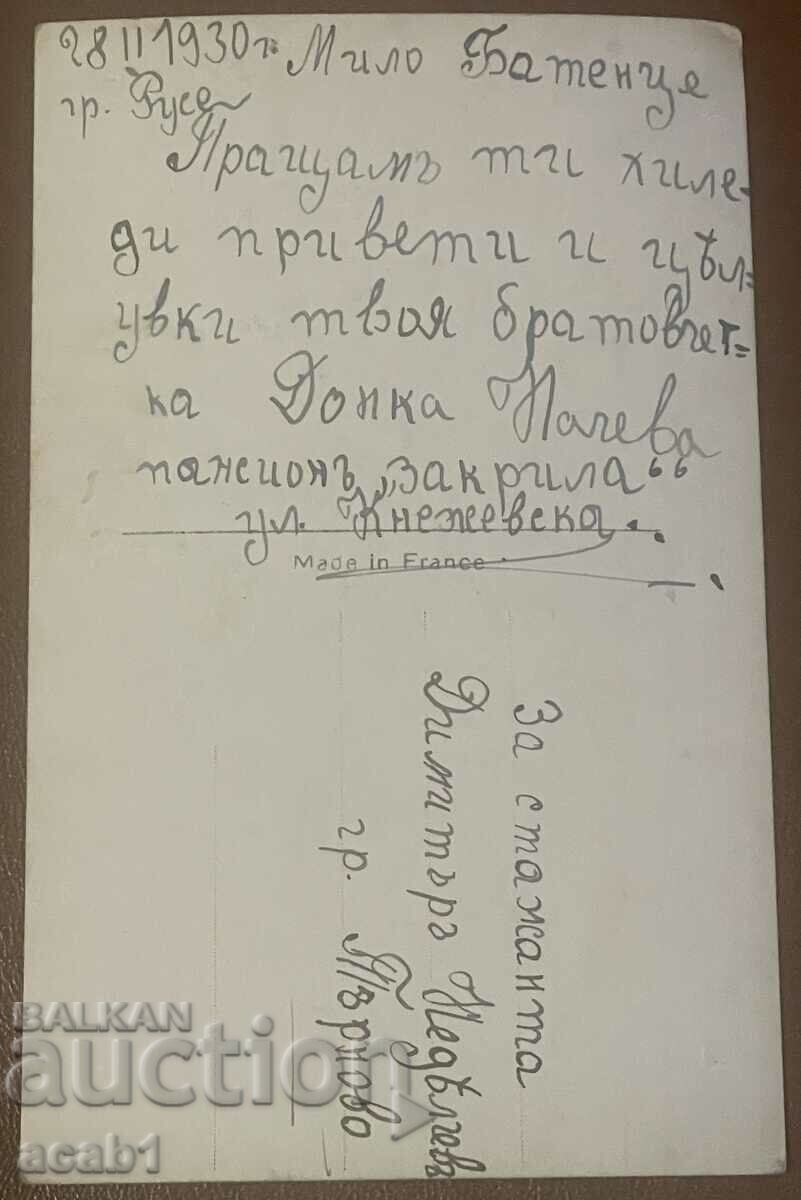 28 II 1930 г. Мило Батенце
гр. Русе
Пращамъ ти хиле-
ди привети и цѣл=
увки твоя братовчет=
ка Донка Начева
пансионъ „закрила“
ул. Кнежевска.
Made in France
За стажанта
Димитъръ Недѣлчевъ
гр. Търново
BALKAN
auction
acab1